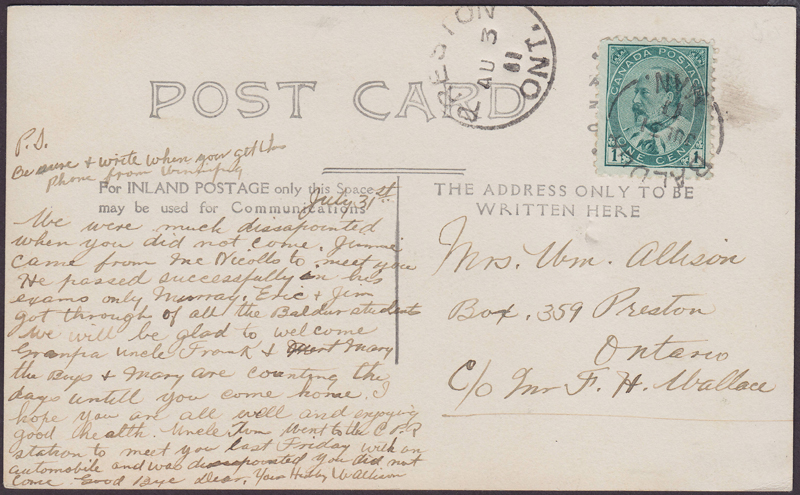 PRESTON
AU 3
11
ONT.
CANADA POSTAGE
ONE CENT
1 1
BALDUR
MAN.
POST CARD
P.S.
Be sure & write when you get this
Phone from Winnipeg
For INLAND POSTAGE only this Space
may be used for Communications
THE ADDRESS ONLY TO BE
WRITTEN HERE
July 31st
We were much dissapointed
when you did not come. Jimmie
came from Mc Nicolls to meet you
He passed successfully in his
exams only Murray, Eric & Jim
got through of all the Baldur students
We will be glad to welcome
Granpa Uncle Frank & Mary
the Boys & Mary are counting the
days untill you come home. I
hope you are all well and enjoying
good health. Uncle Tom went to the C.P.R
station to meet you last Friday with an
automobile and was dissapointed you did not
come Good Bye Dear, Your Hubby W Allison
Mrs. Wm. Allison
Box. 359 Preston
Ontario
C/o Mr F. H. Wallace